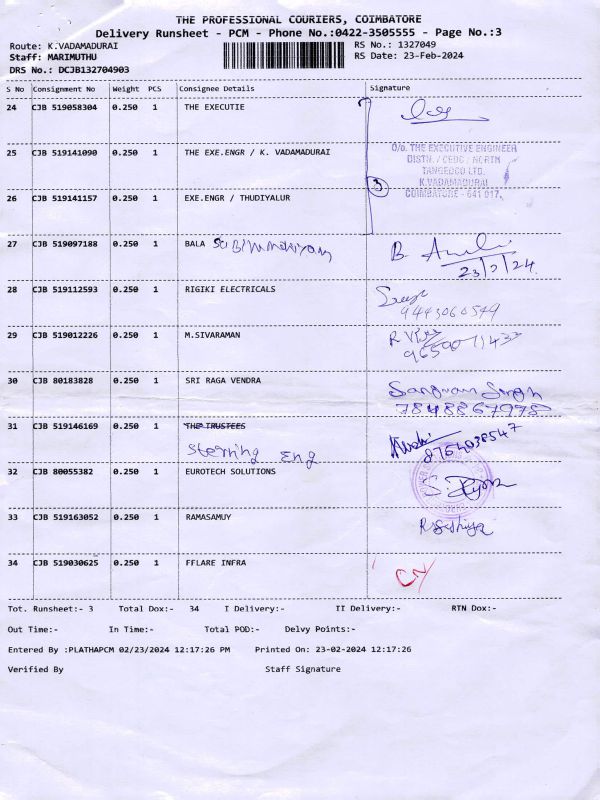 THE PROFESSIONAL COURIERS, COIMBATORE
Delivery Runsheet - PCM - Phone No.:0422-3505555 - Page No.:3
Route: K.VADAMADURAI RS No.: 1327049
Staff: MARIMUTHU RS Date: 23-Feb-2024
DRS No.: DCJB132704903
S No Consignment No Weight PCS Consignee Details Signature
24 CJB 519058304 0.250 1 THE EXECUTIE
25 CJB 519141090 0.250 1 THE EXE.ENGR / K. VADAMADURAI
O/o. THE EXECUTIVE ENGINEER
DISTN. / CEDC / NORTH
TANGEDCO LTD.
K.VADAMADURAI
COIMBATORE - 641 017.
3
26 CJB 519141157 0.250 1 EXE.ENGR / THUDIYALUR
27 CJB 519097188 0.250 1 BALA
23/2/24.
28 CJB 519112593 0.250 1 RIGIKI ELECTRICALS
9443060549
29 CJB 519012226 0.250 1 M.SIVARAMAN
30 CJB 80183828 0.250 1 SRI RAGA VENDRA
Singh
31 CJB 519146169 0.250 1 THE TRUSTEES
8764038547
Eng
32 CJB 80055382 0.250 1 EUROTECH SOLUTIONS
33 CJB 519163052 0.250 1 RAMASAMUY
34 CJB 519030625 0.250 1 FFLARE INFRA
Tot. Runsheet:- 3 Total Dox:- 34 I Delivery:- II Delivery:- RTN Dox:-
Out Time:- In Time:- Total POD:- Delvy Points:-
Entered By :PLATHAPCM 02/23/2024 12:17:26 PM Printed On: 23-02-2024 12:17:26
Verified By Staff Signature